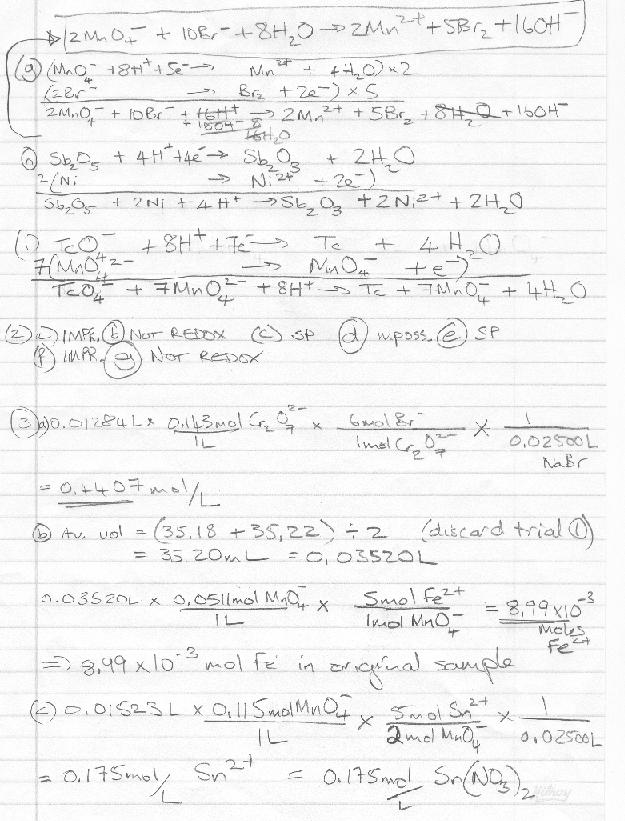 2MnO₄⁻ + 10Br⁻ + 8H₂O → 2Mn²⁺ + 5Br₂ + 16OH⁻
(g) (MnO₄⁻ + 8H⁺ + 5e⁻ → Mn²⁺ + 4H₂O) x2
(2Br⁻ → Br₂ + 2e⁻) x 5
2MnO₄⁻ + 10Br⁻ + 16H⁺ → 2Mn²⁺ + 5Br₂ + 8H₂O + 16OH⁻
+ 16OH⁻ 8
16H₂O
(h) Sb₂O₅ + 4H⁺ + 4e⁻ → Sb₂O₃ + 2H₂O
2(Ni → Ni²⁺ - 2e⁻)
Sb₂O₅ + 2Ni + 4H⁺ → Sb₂O₃ + 2Ni²⁺ + 2H₂O
(i) TcO₄⁻ + 8H⁺ + 7e⁻ → Tc + 4H₂O
7(MnO₄²⁻ → MnO₄⁻ + e⁻)
TcO₄⁻ + 7MnO₄²⁻ + 8H⁺ → Tc + 7MnO₄⁻ + 4H₂O
(2) a) IMPR. (b) NOT REDOX (c) SP (d) n.poss. (e) SP
(f) IMPR. (g) NOT REDOX
(3) a) 0.01284L x 0.143mol Cr₂O₇²⁻ x 6mol Br⁻ x 1
1L 1mol Cr₂O₇²⁻ 0.02500L
NaBr
= 0.4407 mol/L
(b) Av. vol = (35.18 + 35.22) ÷ 2 (discard trial (1))
= 35.20mL = 0.03520L
0.03520L x 0.0511mol MnO₄⁻ x 5mol Fe²⁺ = 8.99 x10⁻³
1L 1mol MnO₄⁻ Moles
Fe²⁺
⇒ 8.99 x 10⁻³ mol Fe in original sample
(c) 0.01523L x 0.115mol MnO₄⁻ x 5mol Sn²⁺ x 1
1L 2mol MnO₄⁻ 0.02500L
= 0.175mol/L Sn²⁺ = 0.175mol/L Sn(NO₃)₂